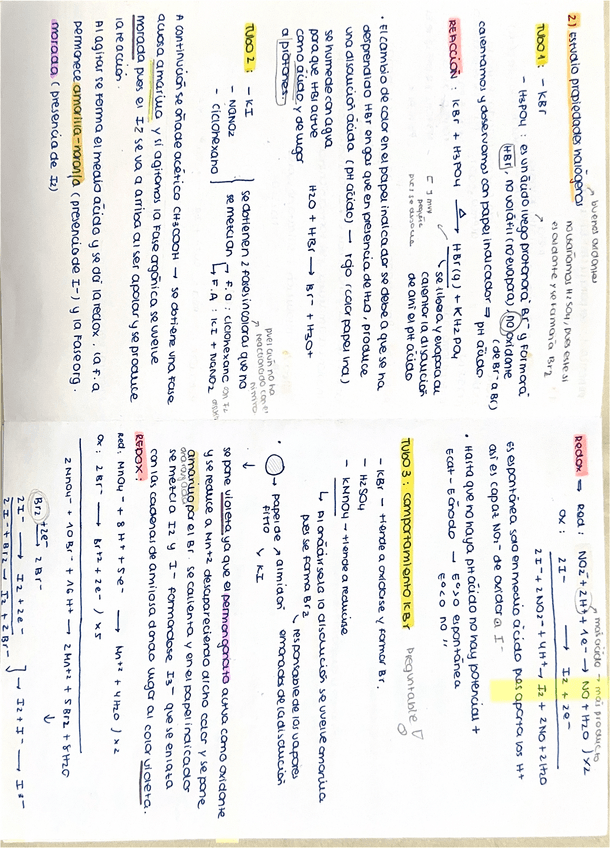 2) Estudio propiedades halógenos
buenos oxidantes
no usaríamos H₂SO₄, pues este sí es oxidante y se formaría Br₂
TUBO 1: - KBr
- H₃PO₄: es un ácido luego protonará Br⁻ y formará HBr, no volátil (no evapora) no oxidante (de Br⁻ a Br)
calentamos y observamos con papel indicador ⇒ pH ácido
REACCIÓN: KBr + H₃PO₄ →(Δ) HBr(g) + KH₂PO₄
se libera y evapora al calentar la disolución de ahí el pH ácido
• El cambio de color en el papel indicador se debe a que se ha
desprendido HBr en gas que en presencia de H₂O, produce
una disolución ácida (pH ácido) → rojo (color papel ind)
se humede con agua
para que HBr actúe
como ácido y de lugar
a protones
H₂O + HBr → Br⁻ + H₃O⁺
TUBO 2: - KI
- NaNO₂
- ciclohexano
se obtienen 2 fases incoloras que no
se mezclan
F.O: ciclohexano
F.A: KI + NaNO₂
pues aún no ha reaccionado con el nitrito
A continuación se añade acético CH₃COOH → se obtiene una fase
acuosa amarilla y si agitamos la fase orgánica se vuelve
morada pues el I₂ se va a arriba al ser apolar y se produce
la reacción.
Al agitar se forma el medio ácido y se da la redox. la F.A
permanece amarilla-naranja (presencia de I⁻) y la fase org.
morada (presencia de I₂)
más ácido → más producto
Redox ⇒ Red: NO₂⁻ + 2H⁺ + 1e⁻ → NO + H₂O ) x2
Ox: 2I⁻ → I₂ + 2e⁻
2I⁻ + 2NO₂⁻ + 4H⁺ → I₂ + 2NO + 2H₂O
Es espontánea solo en medio ácido pues aporta los H⁺
así es capaz NO₂⁻ de oxidar a I⁻
• Hasta que no haya pH ácido no hay potencial +
Ecat - Eánodo → E>0 espontánea
E<0 no "
TUBO 3: comportamiento KBr
Preguntable
- KBr - tiende a oxidarse y formar Br.
- H₂SO₄
- KMnO₄ → tiende a reducirse
↳ Al añadírsela la disolución se vuelve amarilla
pues se forma Br₂
responsable de los vapores
emanados de la disolución
• papel de filtro
almidón
KI
se pone violeta, ya que el permanganato actúa como oxidante
y se reduce a Mn⁺² desapareciendo dicho color y se pone
amarillo por el Br. se calienta y en el papel indicador
se mezcla I₂ y I⁻ formándose I₃⁻ que se enlaza
con las cadenas de amilosa dando lugar al color violeta.
REDOX:
Red: MnO₄⁻ + 8H⁺ + 5e⁻ → Mn⁺² + 4H₂O ) x2
Ox: 2Br⁻ → Br₂ + 2e⁻ ) x5
2MnO₄⁻ + 10Br⁻ + 16H⁺ → 2Mn⁺² + 5Br₂ + 8H₂O
Br₂ + 2e⁻ → 2Br⁻
2I⁻ → I₂ + 2e⁻
2I⁻ + Br₂ → I₂ + 2Br⁻
→ I₂ + I⁻ → I₃⁻